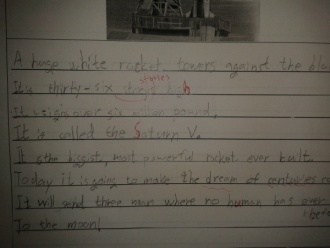 A huge white rocket towers against the
stories
It's thirty-six storys high
It weighs over six million pound.
It is called the Saturn V.
It is the bigist, most powerful rocket ever built.
Today it is going to make the dream of centuries
It will send three man where no human has ever
To the moon!